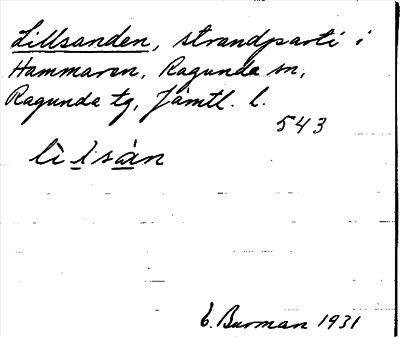 Lillsanden, strandparti i
Hammaren, Ragunda sn,
Ragunda tg, Jämtl. l.
543
lìlsàn
E. Burman 1931